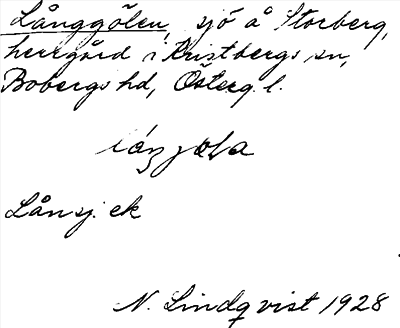 Långgölen, sjö å Storberg,
herrgård i Kristbergs sn,
Bobergs hd, Österg. l.
Lånsj. ek
N. Lindqvist 1928